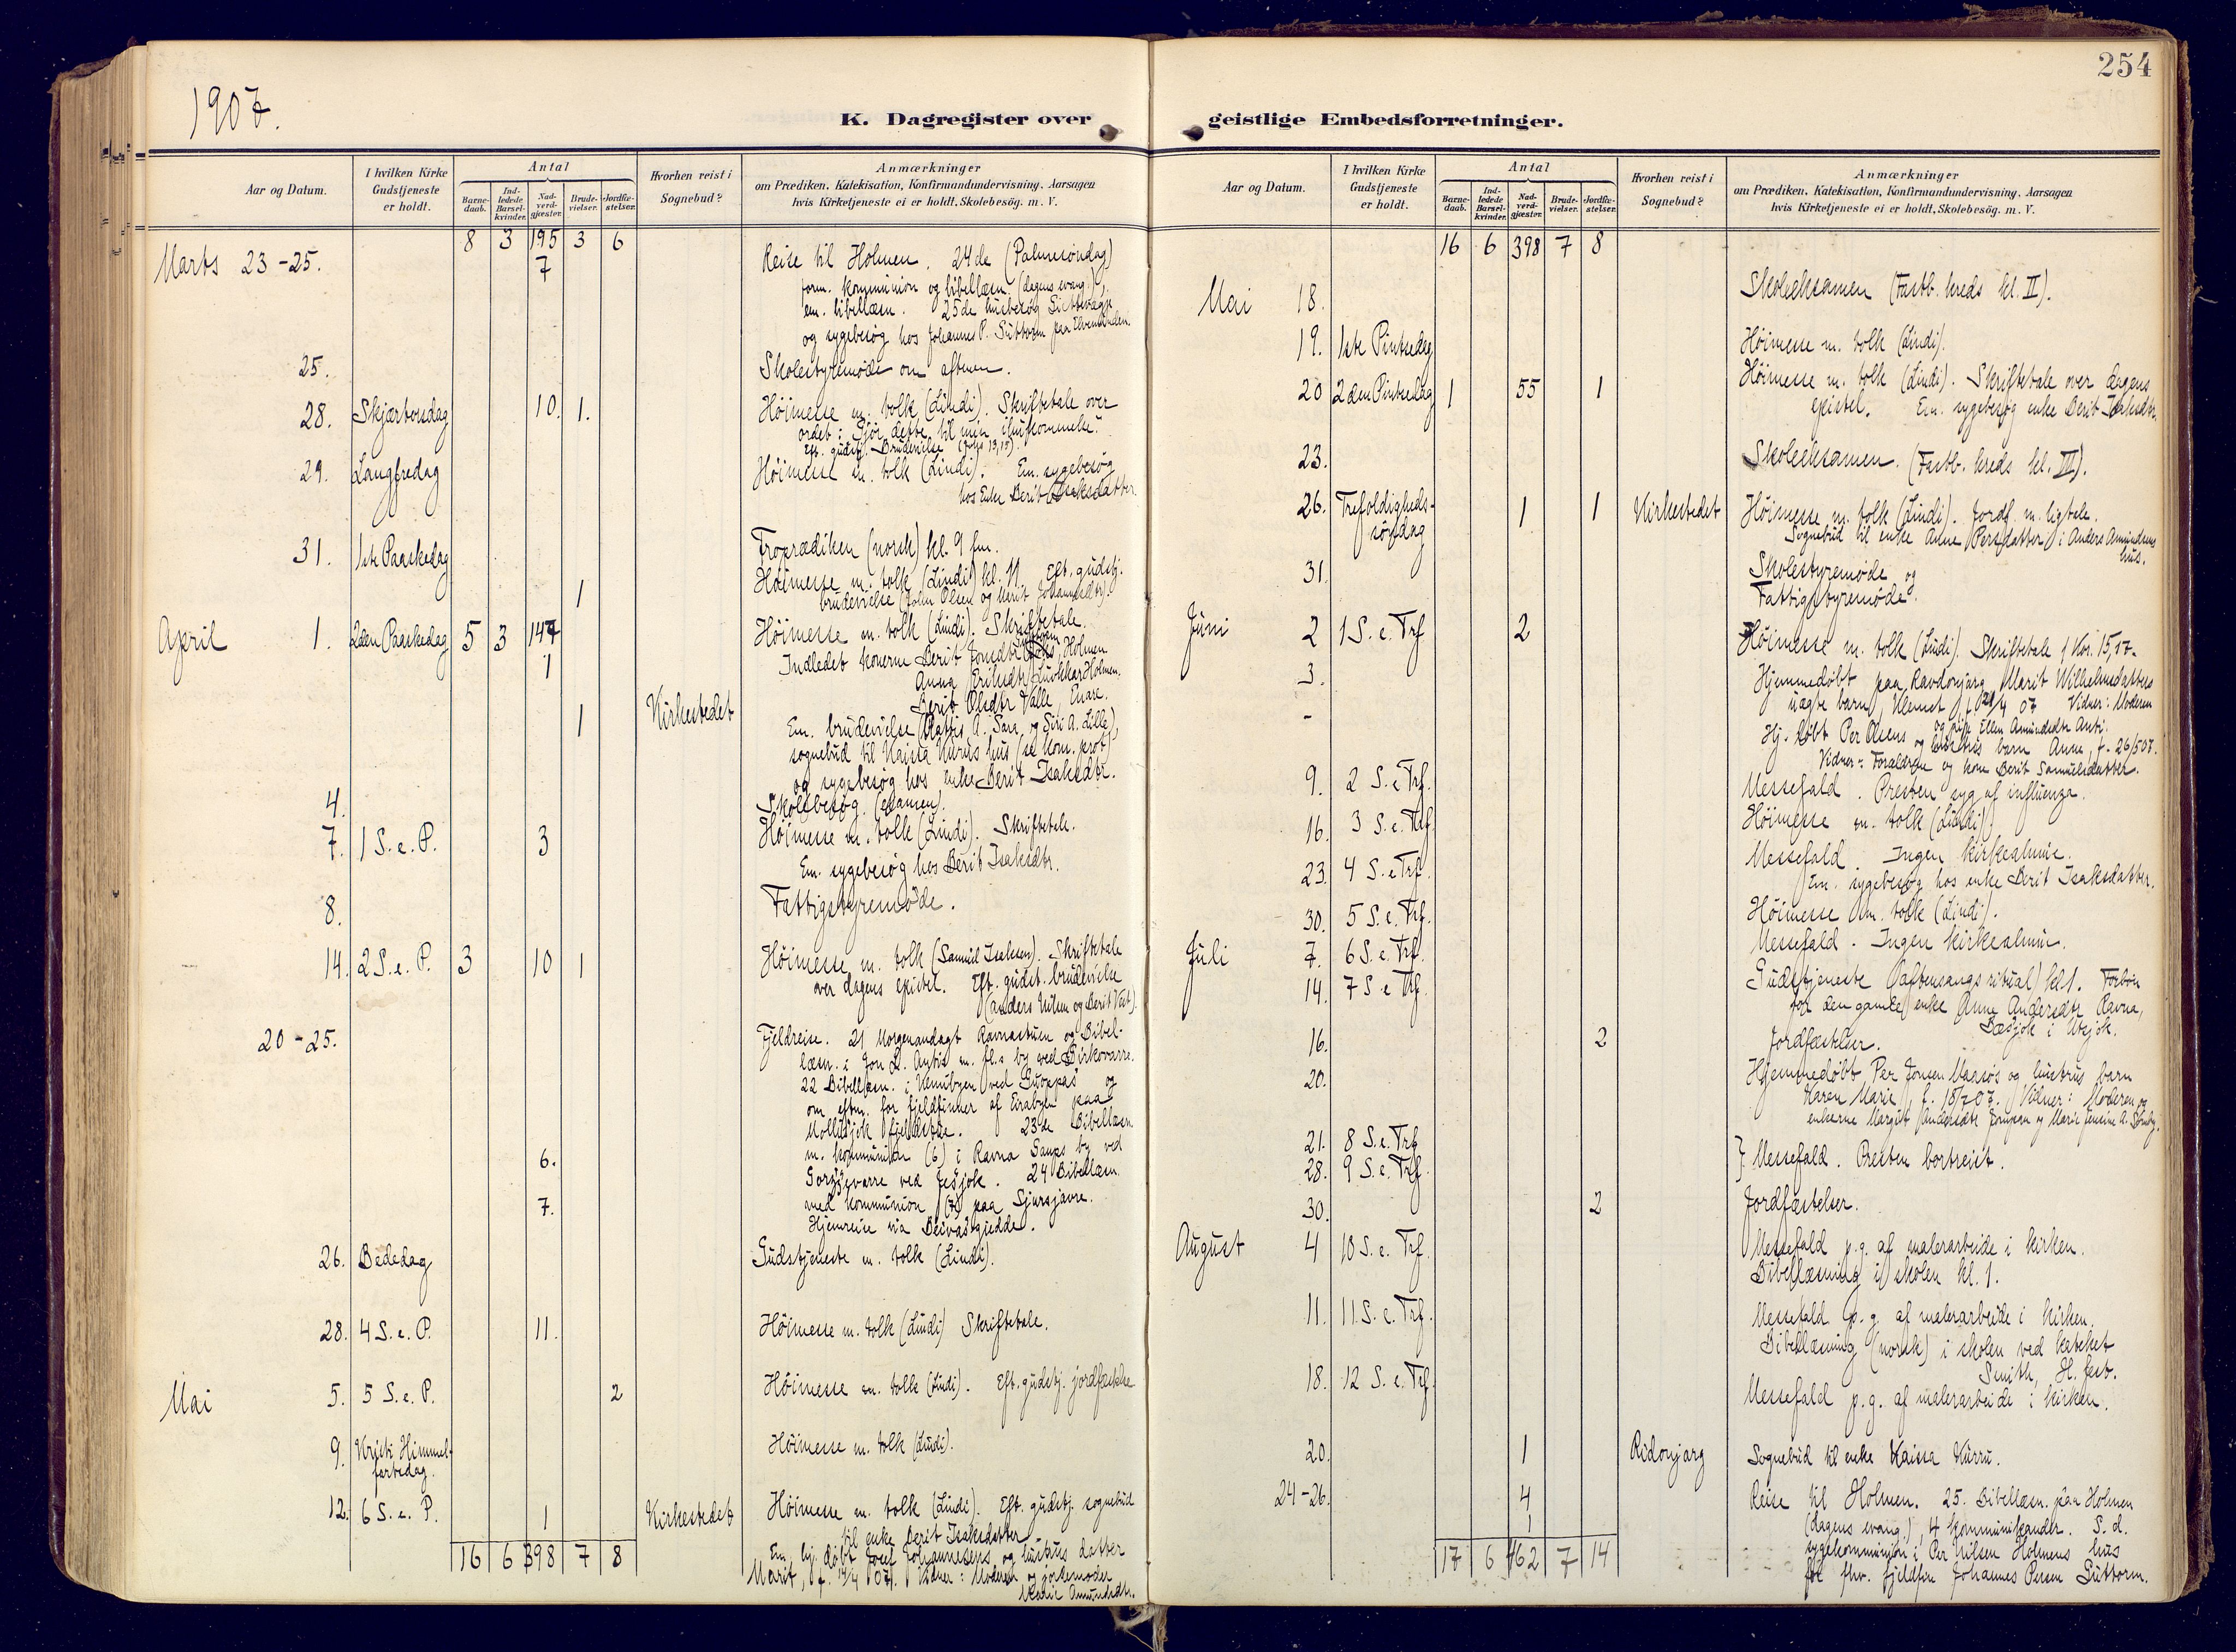 254
1907.
K. Dagregister over geistlige Embedsforretninger.
Aar og Datum.
I hvilken Kirke Gudstjeneste er holdt.
Antal
Barne-daab.
Ind-ledede Barsel-kvinder.
Nad-verd-gjæster.
Brude-vielser.
Jordfæ-stelser.
Hvorhen reist i Sognebud?
Anmærkninger
om Prædiken, Katekisation, Konfirmandundervisning, Aarsagen
hvis Kirketjeneste ei er holdt, Skolebesøg. m. V.
8 3 195 3 6
Marts 23-25. 7 Reise til Holmen. 24de (Palmesöndag)
form. kommunion og bibellæsn. (dagens evang.),
em. bibellæsn. 25de husbesög
og sygebesög hos Johannes P. Guttorm paa Elvemunden.
25. Skolestyremöde om aftenen.
28. Skjærtorsdag 10. 1. Höimesse m. tolk (Lindi). Skriftetale over
ordet: Gjör dette til min ihukommelse.
Eft. gudstj. Brudevielse
29. Langfredag Höimesse m. tolk (Lindi). Em. sygebesög
hos Enke Berit Isaksdatter.
31. 1ste Paaskedag Froprædiken (norsk) kl. 9 fm.
Höimesse m. tolk (Lindi) kl. 11. Eft. gudstj.
1 brudevielse (John Olsen og Marit Johannesdtr).
April 1. 2den Paaskedag 5 3 147 Höimesse m. tolk (Lindi). Skriftetale.
1 Indledet konerne Berit Jonsdtr Holmen
Anna Eriksdtr Luokkar Holmen.
Berit Olsdtr Valle, Enare.
1 Kirkestedet Em. brudevielse (Mattis A. Sara og Siri A. Lille),
sognebud til Kaissa Kurrus hus (se kom. prot)
og sygebesög hos enke Berit Isaksdtr.
4. Skolebesög (eksamen).
7. 1 S. e. P. 3 Höimesse m. tolk (Lindi). Skriftetale.
Em. sygebesög hos Berit Isaksdtr.
8. Fattigstyremöde.
14. 2 S. e. P. 3 10 1 Höimesse m. tolk (Samuel Isaksen). Skriftetale
over dagens epistel. Eft. gudst. brudevielse
(Anders Nilsen og Berit Vest).
20-25. Fjeldreise. 21 Morgenandagt Ravnastuen og Bibel-
læsn. i Jon L. Anti's m. fl.s by ved Birkovarre.
22 Bibellæsn. i Nemubyen ved Guoppas og
om eftm. for fjeldfinner af Eirabyen paa
Mollisjok fjeldstue. 23de Bibellæsn.
6. m. kommunion (6) i Ravna Gaups by ved
Gorzjevarre ved Jesjok. 24 Bibellæsn.
7. med kommunion (7) paa Sjursjavre.
Hjemreise via Beivasgiedde.
26. Bededag Gudstjeneste m. tolk (Lindi).
28. 4 S. e. P. 11. Höimesse m. tolk (Lindi) Skriftetale.
Mai 5. 5 S. e. P. 2 Höimesse m. tolk (Lindi). Eft. gudstj. jordfæstelse
9. Kristi Himmel-
fartsdag. Höimesse m. tolk (Lindi).
12. 6 S. e. P. 1 Kirkestedet Höimesse m. tolk (Lindi). Eft. gudstj. sognebud
til enke Berit Isaksdatter
16 6 398 7 8 Em. hj. döbt Josef Johannesens og hustrus datter
Marit, f. 14/4 07. Vidner: Moderen og jordemoder
Marie Amundsdtr.
Aar og Datum.
I hvilken Kirke Gudstjeneste er holdt.
Antal
Barne-daab.
Ind-ledede Barsel-kvinder.
Nad-verd-gjæster.
Brude-vielser.
Jordfæ-stelser.
Hvorhen reist i Sognebud?
Anmærkninger
om Prædiken, Katekisation, Konfirmandundervisning, Aarsagen
hvis Kirketjeneste ei er holdt, Skolebesøg. m. V.
16 6 398 7 8
Mai 18. Skoleeksamen (Fastb. kreds kl. II).
19. 1ste Pintsedag Höimesse m. tolk (Lindi).
20 2den Pintsedag 1 55 1 Höimesse m. tolk (Lindi). Skriftetale over dagens
epistel. Em. sygebesög enke Berit Isaksdtr.
23. Skoleeksamen. (Fastb. kreds kl. III).
26. Trefoldigheds-
söndag 1 1 Kirkestedet Höimesse m. tolk (Lindi). Jordf. m. ligtale.
Sognebud til enke Anne Persdatter i Anders Amundsens
hus.
31. Skolestyremöde og
Fattigstyremöde.
Juni 2 1 S. e. Trf 2 Höimesse m. tolk (Lindi). Skriftetale 1 Kor. 15,17.
3. Hjemmedöbt paa Ravdonjarg Marit Wilhelmsdatters
uægte barn, Klemet f. 21/4 07 Vidner: Moderen
og pige Ellen Amundsdtr Anti.
- Hj. döbt Per Olsens og hustrus barn Anne, f. 26/5 07.
Vidner: Forældrene og kone Berit Samuelsdatter.
9. 2 S. e Trf. Messefald. Presten syg af influenza.
16. 3 S. e. Trf. Höimesse m. tolk (Lindi).
23. 4 S. e Trf. Messefald. Ingen kirkealmue.
Em. sygebesög hos enke Berit Isaksdatter.
30. 5 S. e. Trf. Höimesse m. tolk (Lindi).
Juli 7. 6 S. e. Trf. Messefald. Ingen kirkealmue.
14. 7 S e Trf. Gudstjeneste (aftensangsritual) kl. 1. Forbön
for den gamle enke Anne Andersdtr Ravna,
Bæsjok i Utsjok.
16. 2 Jordfæstelser.
20. Hjemmedöbt Per Jonsen Maasös og hustrus barn
Karen Marie, f. 18/7 07. Vidner: Moderen og
enkerne Margit Andersdtr Jonsen og Marie Jensine A. Somby.
21. 8 S. e. Trf
28. 9 S. e. Trf. } Messefald. Presten bortreist.
30. 2 Jordfæstelser.
August 4 10 S. e. Trf. Messefald p. g. af malerarbeide i kirken.
Bibellæsning i skolen kl. 1.
11. 11 S. e. Trf. Messefald p. g. af malerarbeide i kirken.
Bibellæsning (norsk) i skolen ved kateket
Smith, H.fest.
18. 12 S. e. Trf. Messefald p. g. af malerarbeide i kirken.
20. 1 Ridonjarg Sognebud til enke Kaissa Kurru.
24-26. 4 Reise til Holmen. 25. Bibellæsn. paa Holmen
1 (dagens evang.), 4 kommunikanter. S. d.
17 6 462 7 14 sygekommunion i Per Nilsen Holmens hus
for fhv. fjeldfin Johannes Persen Guttorm.